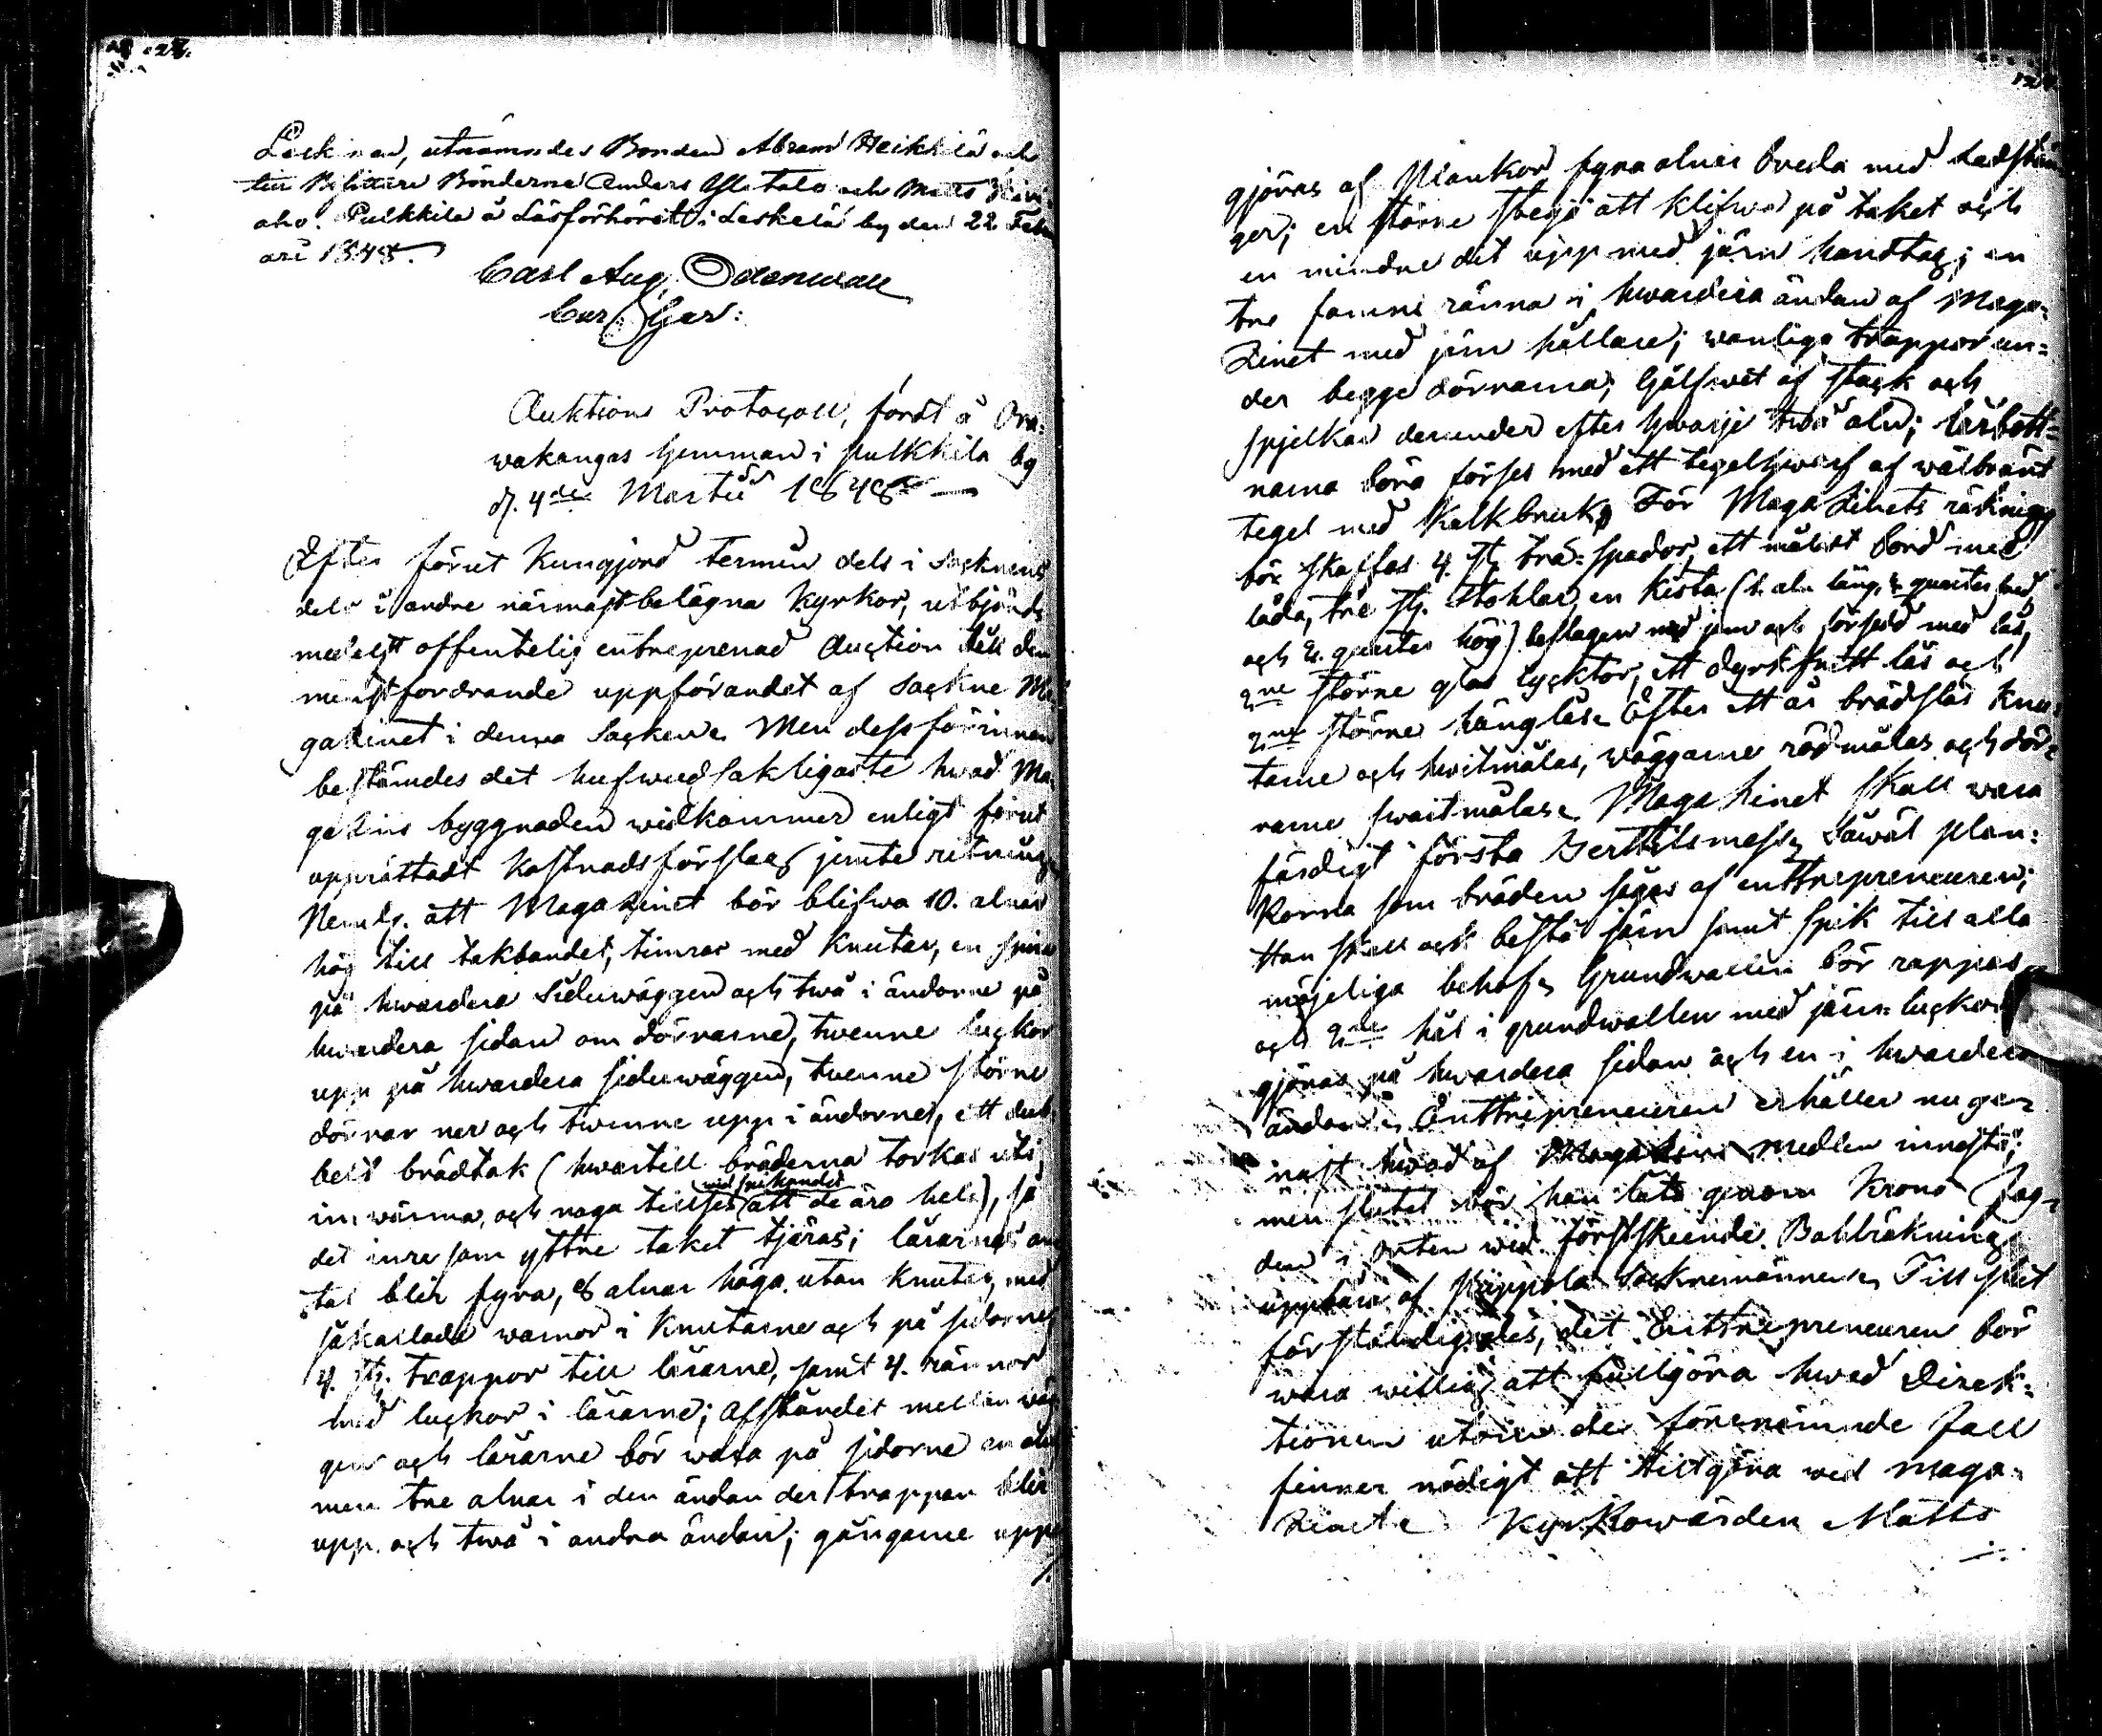 Leskinen, utnämndes Bonden Abram Heikkilä och
till Bisittare Bönderne Anders Yli Talo och Matts
aho. Pulkkila å Läsförhöret i Leskelä by den 22 Febru
ari 1848.
Carl Aug. Odenwall
Auktions Protocoll, fördt å Ora-
wakangas hemman i Pulkkila by
d. 4de Martii 1848
Efter förut kungjord termin dels i Socknens
dels i andre närmast belägna kyrkor, utbjöds
medelst offentelig entreprenad Auction till den
minstfordrande uppförandet af Sockne Ma-
gazinet i denna Socken. Men dess förinnan
bestämdes det hufwudsakligaste hwad Ma-
gazins byggnaden widkommer enligt förut
upprättadt kostnadsförslag jemte ritning,
Neml. att Magazinet bör blifwa 10. alnar
hög till takbandet, timras med knutar, en
på hwardera Sidowäggen och twå i ändorne på
hwardera sidan om dörrarne, twenne luckor
upp på hwardera sidowäggen, twenne större
dörrar ner och twenne upp i ändorne, ett dub-
belt brädtak (hwartill bräderna torkas uti
inwärme, och noga tillses att de äro hela), så
det inre som yttre taket tjäras; lårarnes an-
tal blir fyra, 8 alnar höga utan knutar, med
såkallade warnor i knutarne och på sidorne,
4. st. trappor till lårarne, samt 4. rännor
med luckor i lårarne; afståndet mellan wäg-
gen och lårarne bör wara på sidorne en aln
men tre alnar i den ändan der trappan blir
upp och twå i andra ändan; gångarne upp
gjöras af Plankor fyra alnar breda med Ledstän
ger; en större stege att klifwa på taket och
en mindre dit upp med järn handtag; en
tre famns ränna i hwardera ändan af Maga-
zinet med järn hållare; wanliga trappor un-
der begge dörrarna; Gålfwet af stock och
spjelkar derunder efter hwarje twå aln; lårbott-
narna böra förses med ett tegelhwarf af wälbränt
tegel med kalkbruk. För Magazinets räkning
bör skaffas 4. st. trä-spador, ett målat bord med
låda, tre st. Stohlar, en Kista (2. aln lång, 5 quarter bred,
och 4. quarter hög) beslagen med jern och försedd med lås,
2ne större glas lycktor, ett dyrkfritt lås och
2ne större hänglås. Efter ett år brädslås knu-
tarne och hwitmålas, wäggarne rödmålas och dör-
rarne swartmålas. Magazinet skall wara
färdigt första Berttilsmesse. Såwäl plan-
korna som bräden sågas af enttrepreneuren;
Han skall ock bestå järn samt spik till alla
möjeliga behof. Grundwallen bör rappas
och 2ne hål i grundwallen med järn-luckor
gjöras på hwardera sidan och en i hwardera
ändan. Enttrepreneuren erhåller nu ge-
nast hwad af Magazins medlen innestå;
men slutet bör han låta genom Krono Fog-
den i Orten wid förstskeende Bohlräkning
uppbära af Pippola Socknemännen. Till slut
förständigades, det Enttrepreneuren bör
wara willig att fullgöra hwad Direk-
tionen utöfwer de förenämnde fall
finner nödigt att tillgöra wid Maga-
zinet. Kyrkowärden Matts